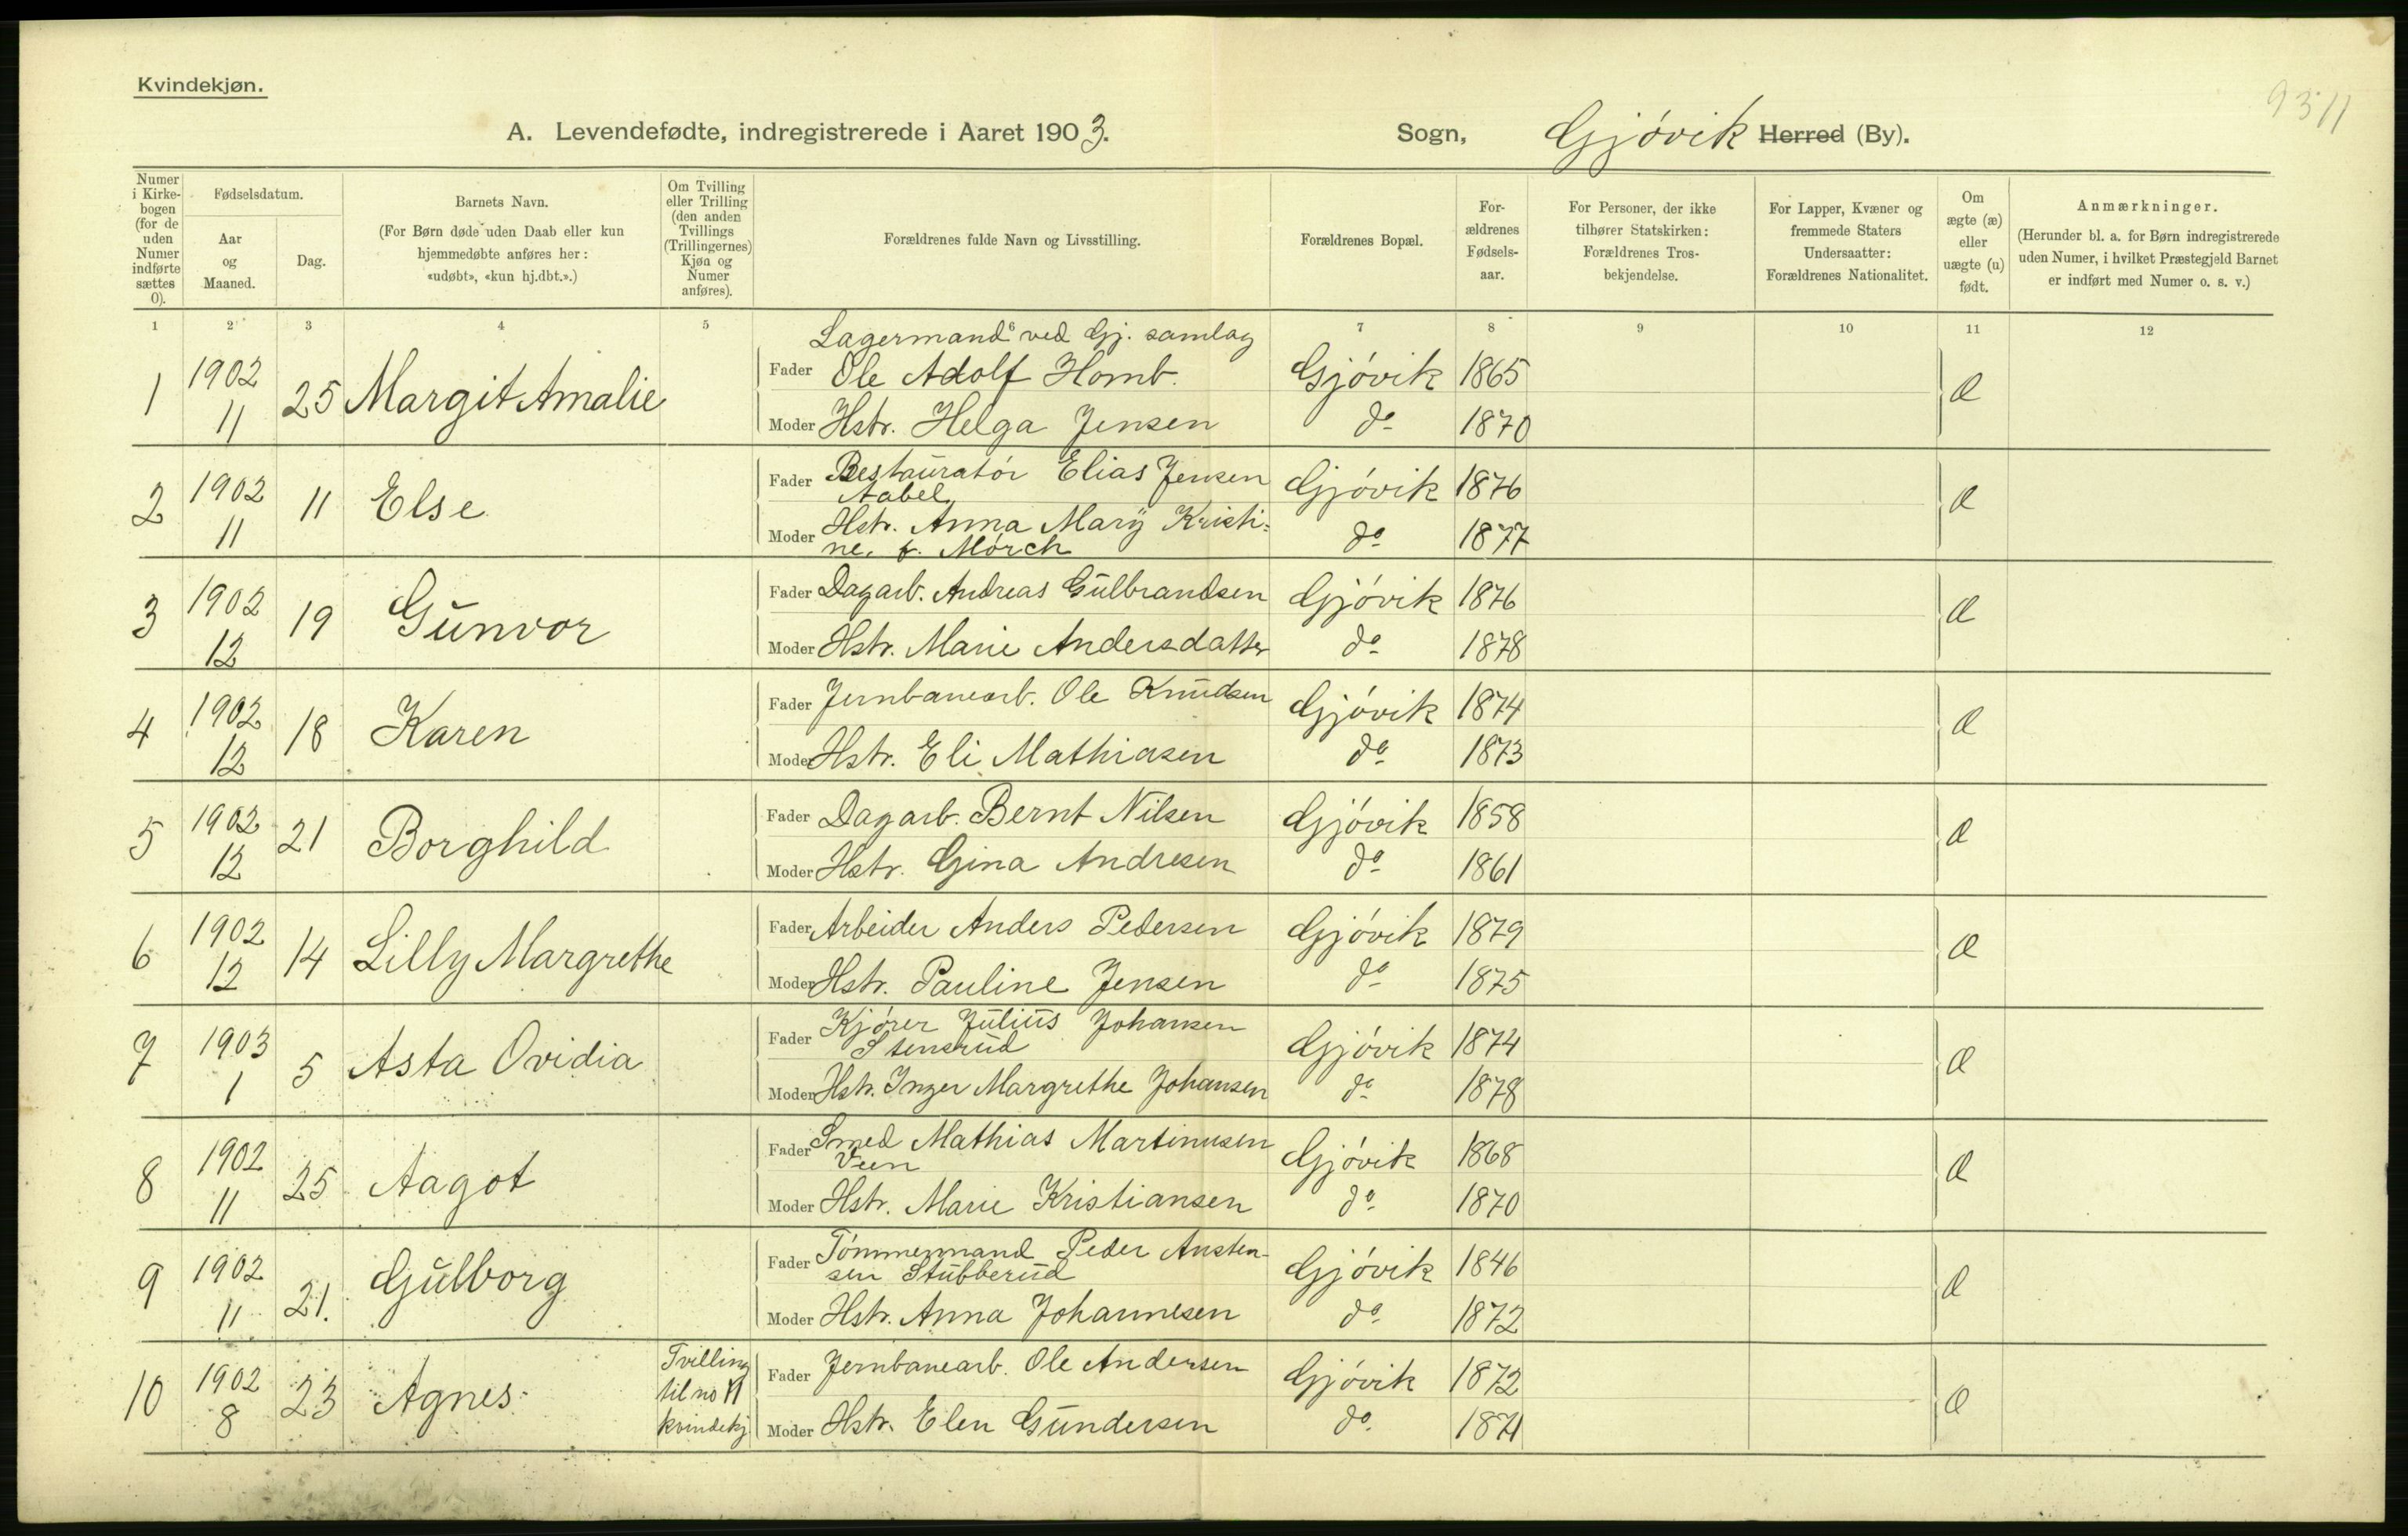 Kvindekjøn.
9311
A. Levendefødte, indregistrerede i Aaret 1903. Sogn, Gjøvik Herred (By).
Numer i Kirkebogen (for de uden Numer indførte sættes 0).
Fødselsdatum.
Aar og Maaned.
Dag.
Barnets Navn.
(For Børn døde uden Daab eller kun hjemmedøbte anføres her: «udøbt», «kun hj.dbt.».)
Om Tvilling eller Trilling (den anden Tvillings (Trillingernes) Kjøn og Numer anføres).
Forældrenes fulde Navn og Livsstilling.
Forældrenes Bopæl.
Forældrenes Fødselsaar.
For Personer, der ikke tilhører Statskirken: Forældrenes Trosbekjendelse.
For Lapper, Kvæner og fremmede Staters Undersaatter: Forældrenes Nationalitet.
Om ægte (æ) eller uægte (u) født.
Anmærkninger.
(Herunder bl. a. for Børn indregistrerede uden Numer, i hvilket Præstegjeld Barnet er indført med Numer o. s. v.)
1 2 3 4 5 6 7 8 9 10 11 12
1 1902 11 25 Margit Amalie
Lagermand ved Gj. samlag
Fader Ole Adolf Homb. Gjøvik 1865 Æ
Moder Hstr. Helga Jensen do 1870
2 1902 11 11 Else
Fader Restauratør Elias Jensen Aabel Gjøvik 1876 Æ
Moder Hstr. Anna Mary Kristine, f. Mørch do 1877
3 1902 12 19 Gunvor
Fader Dagarb. Andreas Gulbrandsen Gjøvik 1876 Æ
Moder Hstr. Marie Andersdatter do 1878
4 1902 12 18 Karen
Fader Jernbanearb. Ole Knudsen Gjøvik 1874 Æ
Moder Hstr. Eli Mathiasen do 1873
5 1902 12 21 Borghild
Fader Dagarb. Bernt Nilsen Gjøvik 1858 Æ
Moder Hstr. Gina Andresen do 1861
6 1902 12 14 Lilly Margrethe
Fader Arbeider Anders Pedersen Gjøvik 1879 Æ
Moder Hstr. Pauline Jensen do 1875
7 1903 1 5 Asta Ovidia
Fader Kjører Julius Johansen Stensrud Gjøvik 1874 Æ
Moder Hstr. Inger Margrethe Johansen do 1878
8 1902 11 25 Aagot
Fader Smed Mathias Martinusen Veen Gjøvik 1868 Æ
Moder Hstr. Marie Kristiansen do 1870
9 1902 11 21. Gulborg
Fader Tømmermand Peder Austensen Stubberud Gjøvik 1846 Æ
Moder Hstr. Anna Johannesen do 1872
10 1902 8 23 Agnes Tvilling til no 11 kvindekj
Fader Jernbanearb. Ole Andersen Gjøvik 1872 Æ
Moder Hstr. Elen Gundersen do 1871